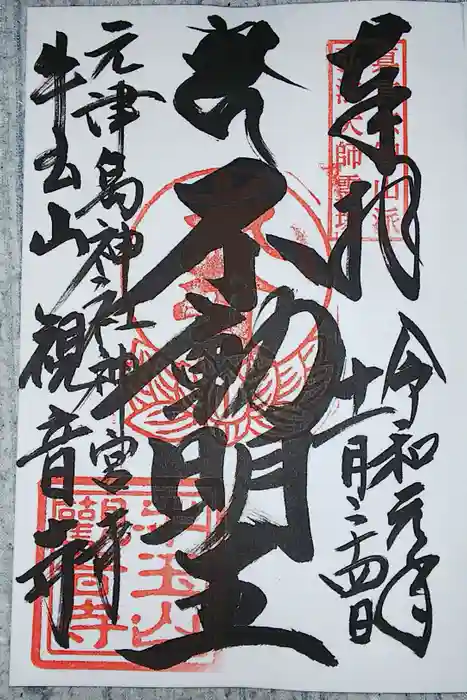 奉拝
令和元年
十一月二十四日
不動明王
元津島神社神宮寺
牛玉山観音寺
牛玉山
観音寺